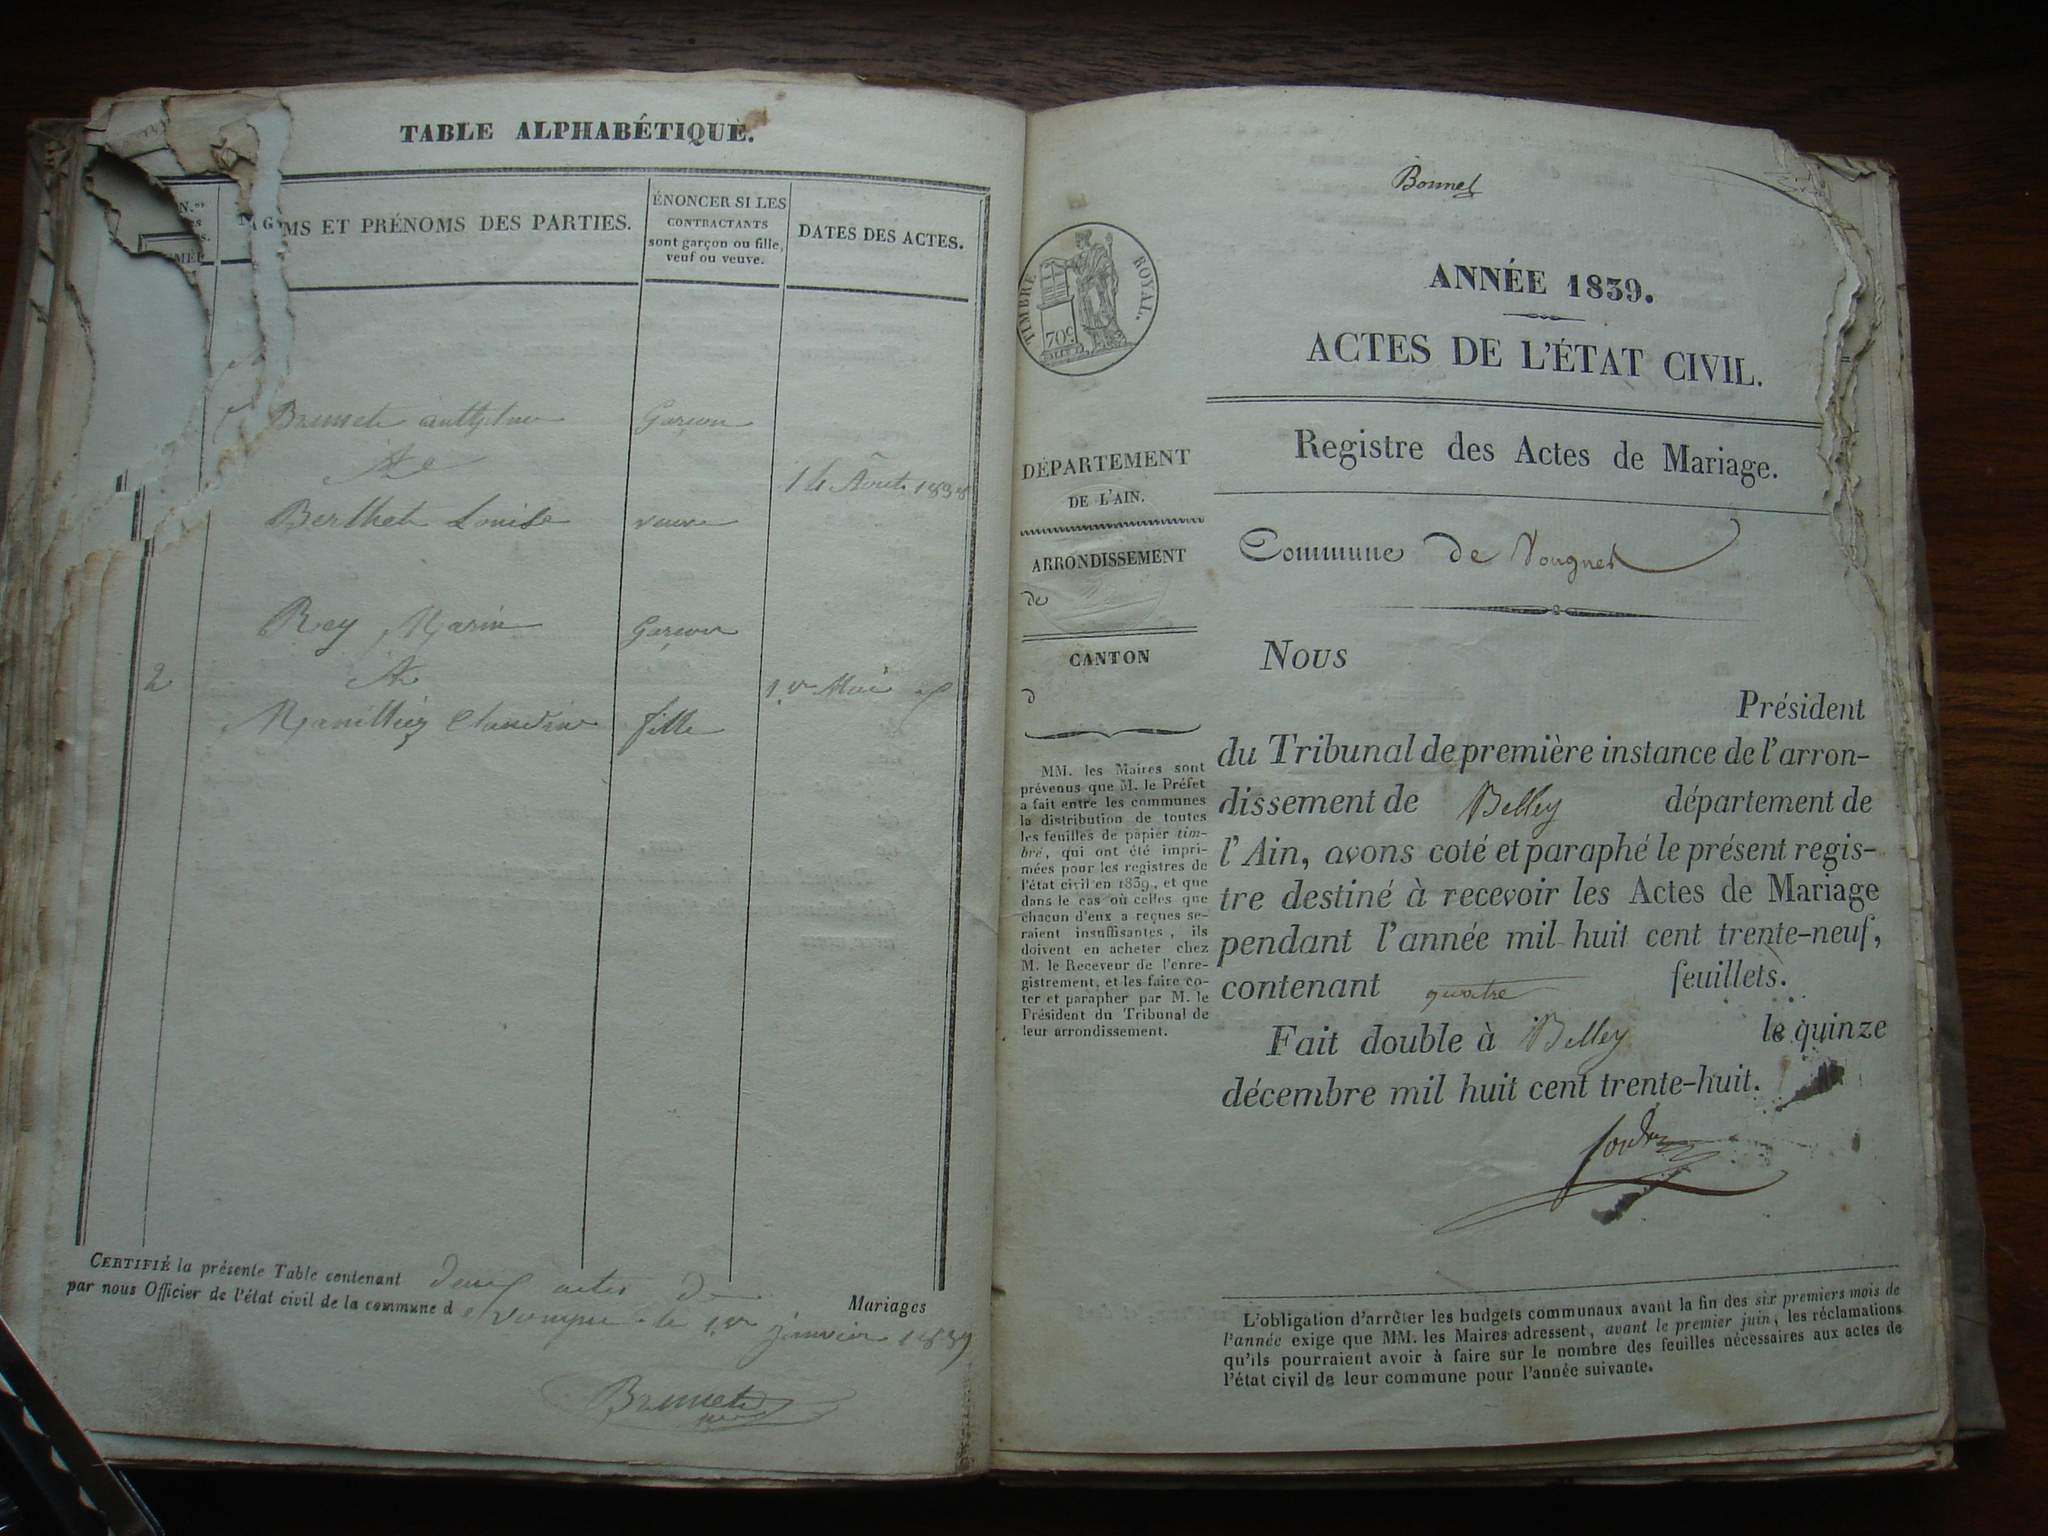 TABLE ALPHABÉTIQUE.
MS ET PRÉNOMS DES PARTIES.
ÉNONCER SI LES
CONTRACTANTS
sont garçon ou fille,
veuf ou veuve.
DATES DES ACTES.
Garçon
14 Août 1838
Berthet Louise
veuve
Rey Marin
Garçon
2
1.er Mai
fille
CERTIFIÉ la présente Table contenant deux actes de Mariages
par nous Officier de l'état civil de la commune d le 1.er janvier 1839
Brunet
Bonnet
TIMBRE ROYAL.
70c
ANNÉE 1839.
ACTES DE L'ÉTAT CIVIL.
Registre des Actes de Mariage.
Commune de Vougnes
DÉPARTEMENT
DE L'AIN.
ARRONDISSEMENT
de
CANTON
d
MM. les Maires sont
prévenus que M. le Préfet
a fait entre les communes
la distribution de toutes
les feuilles de papier tim-
bré, qui ont été impri-
mées pour les registres de
l'état civil en 1839, et que
dans le cas où celles que
chacun d'eux a reçues se-
raient insuffisantes, ils
doivent en acheter chez
M. le Receveur de l'enre-
gistrement, et les faire co-
ter et parapher par M. le
Président du Tribunal de
leur arrondissement.
Nous
Président
du Tribunal de première instance de l'arron-
dissement de Belley département de
l'Ain, avons coté et paraphé le présent regis-
tre destiné à recevoir les Actes de Mariage
pendant l'année mil huit cent trente-neuf,
contenant quatre feuillets.
Fait double à Belley le quinze
décembre mil huit cent trente-huit.
L'obligation d'arrêter les budgets communaux avant la fin des six premiers mois de
l'année exige que MM. les Maires adressent, avant le premier juin, les réclamations
qu'ils pourraient avoir à faire sur le nombre des feuilles nécessaires aux actes de
l'état civil de leur commune pour l'année suivante.